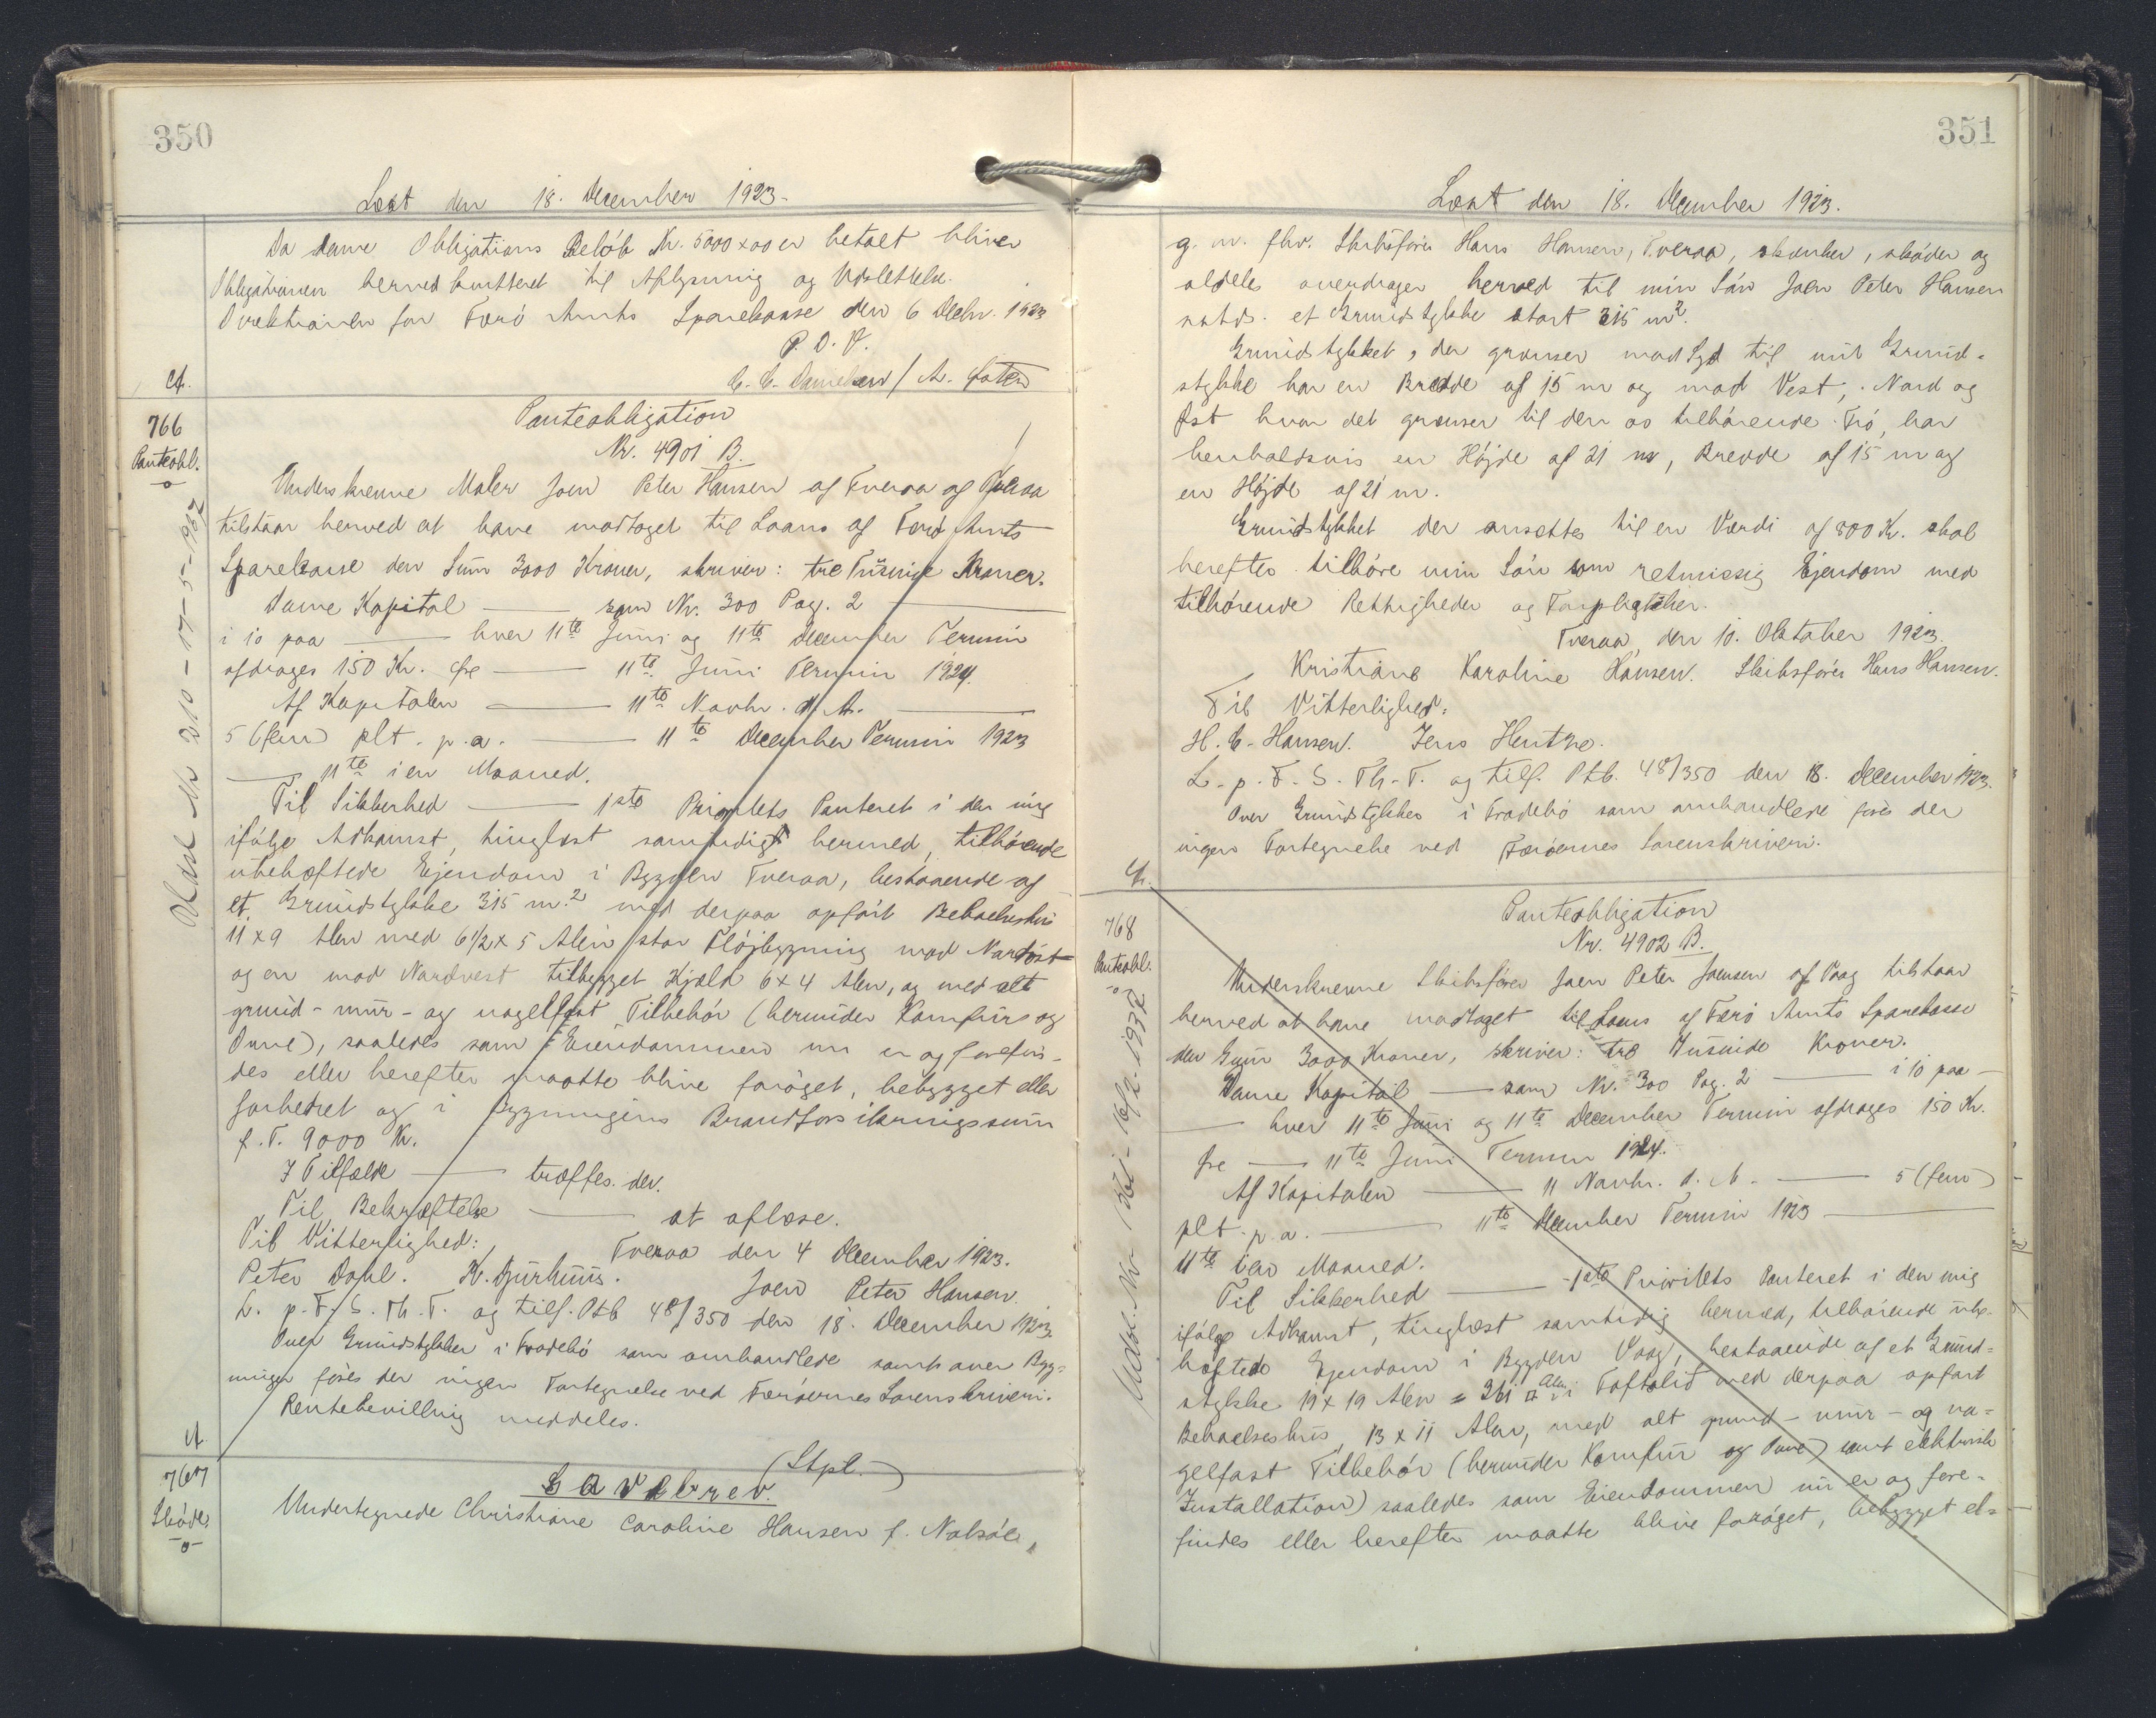 350
Læst den 18. December 1923.
Da denne Obligations Beløb Kr. 5000 x 00 er betalt bliver
Obligationen herved kvitteret til Aflysning og Udslettelse.
Direktionen for Færø Amts Sparekasse den 6 Decbr. 1923
P. D. V.
C. C. Danielsen / A.
Cf.
766
Panteobl.
Panteobligation
Nr. 4901 B.
Underskrevne Maler Joen Peter Hansen af Tveraa af Tveraa
tilstaar herved at have modtaget til Laans af Færø Amts
Sparekasse den Sum 3000 Kroner, skriver: tre Tusinde Kroner.
Denne Kapital — som Nr. 300 Pag. 2 —
i 10 paa — hver 11te Juni og 11te December Termin
afdrages 150 Kr. fre — 11te Juni Termin 1924.
Af Kapitalen — 11te Novbr. d. A. —
5 (fem) pCt. p. a. — 11te December Termin 1923
— 11te i en Maaned.
Til Sikkerhed — 1ste Prioritets Panteret i den mig
ifølge Adkomst, tinglæst samtidigt hermed, tilhørende
ubehæftede Ejendom i Bygden Tveraa, bestaaende af
et Grundstykke 315 m.2 med derpaa opført Beboelseshus
11 x 9 Alen med 6 1/2 x 5 Alen stor Fløjbygning mod Nordøst
og en mod Nordvest tilbygget Kjøld 6 x 4 Alen, og med alt
grund- mur- og nagelfast Tilbehør (herunder Komfurs og
Ovne), saaledes som Eiendommen nu er og forefin-
des eller herefter maatte blive forøget, bebygget eller
forbedret og i Bygningens Brandforsikringssum
f. T. 9000 Kr.
I Tilfælde — træffes. der.
Til Bekræftelse — at aflæse.
Til Vitterlighed: Tveraa den 4 December 1923.
Peter Dahl. K. Djurhuus. Joen Peter Hansen.
L. p. F. S. Th. T. og tilf. Ptb 48/350 den 18. December 1923.
Over Grundstykker i Tradebø som omhandlede samt over Byg-
ninger føres der ingen Fortegnelse ved Færøernes Sorenskriveri.
Rentebevilling meddeles.
Cf.
Udsl. Nr 210 - 17-5-1962
767
Skøde
(Stpl.)
Gavebrev.
Undertegnede Christiane Caroline Hansen f. Nolsøe,
351
Læst den 18. December 1923.
g. m. fhv. Skibsfører Hans Hansen, Tveraa, skænker, skøder og
aldeles overdrager herved til min Søn Joen Peter Hansen
sstds. et Grundstykke stort 315 m2.
Grundstykket, der grænser mod Syd til mit Grund-
stykke har en Bredde af 15 m og mod Vest, Nord og
Øst hvor det grænser til den os tilhørende Trø, har
henholdsvis en Højde af 21 m, Bredde af 15 m og
en Højde af 21 m.
Grundstykket der ansættes til en Værdi af 800 Kr. skal
herefter tilhøre min Søn som retmæssig Ejendom med
tilhørende Rettigheder og Forpligtelser.
Tveraa, den 10. Oktober 1923.
Kristiane Karoline Hansen. Skibsfører Hans Hansen.
Til Vitterlighed:
H. C. Hansen. Jens Hentze.
L. p. F. S. Th. T. og tilf. Ptb. 48/350 den 18. December 1923.
Over Grundstykker i Tradebø som omhandlede føres der
ingen Fortegnelse ved Færøernes Sorenskriveri.
Cf.
768
Panteobl.
Panteobligation
Nr. 4902 B.
Underskrevne Skibsfører Joen Peter Joensen af Vaag tilstaar
herved at have modtaget til Laans af Færø Amts Sparekasse
den Sum 3000 Kroner, skriver: tre Tusinde Kroner.
Denne Kapital — som Nr. 300 Pag. 2 — i 10 paa —
— hver 11te Juni og 11te December Termin afdrages 150 Kr.
fre — 11te Juni Termin 1924.
Af Kapitalen — 11 Novbr. d. A. — 5 (fem)
pCt. p. a. — 11te December Termin 1923 —
11te i en Maaned.
Til Sikkerhed — 1ste Prioritets Panteret i den mig
ifølge Adkomst, tinglæst samtidig hermed, tilhørende ube-
hæftede Ejendom i Bygden Vaag, bestaaende af et Grund-
stykke 19 x 19 Alen = 361 □ Alen i Toftelid med derpaa opført
Beboelseshus, 13 x 11 Alen, med alt grund- mur- og na-
gelfast Tilbehør (herunder Komfur og Ovne) samt elektrisk
Installation) saaledes som Eiendommen nu er og fore-
findes eller herefter maatte blive forøget, bebygget el-